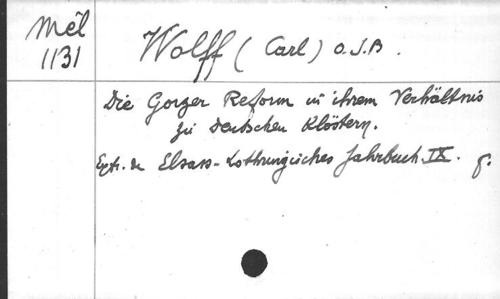 Mél
1131
Wolff (Carl) O.S.B.
Die Gorzer Reform in ihrem Verhältnis
zu deutschen Klöstern.
Extr. de Elsass-Lothringisches Jahrbuch IX.